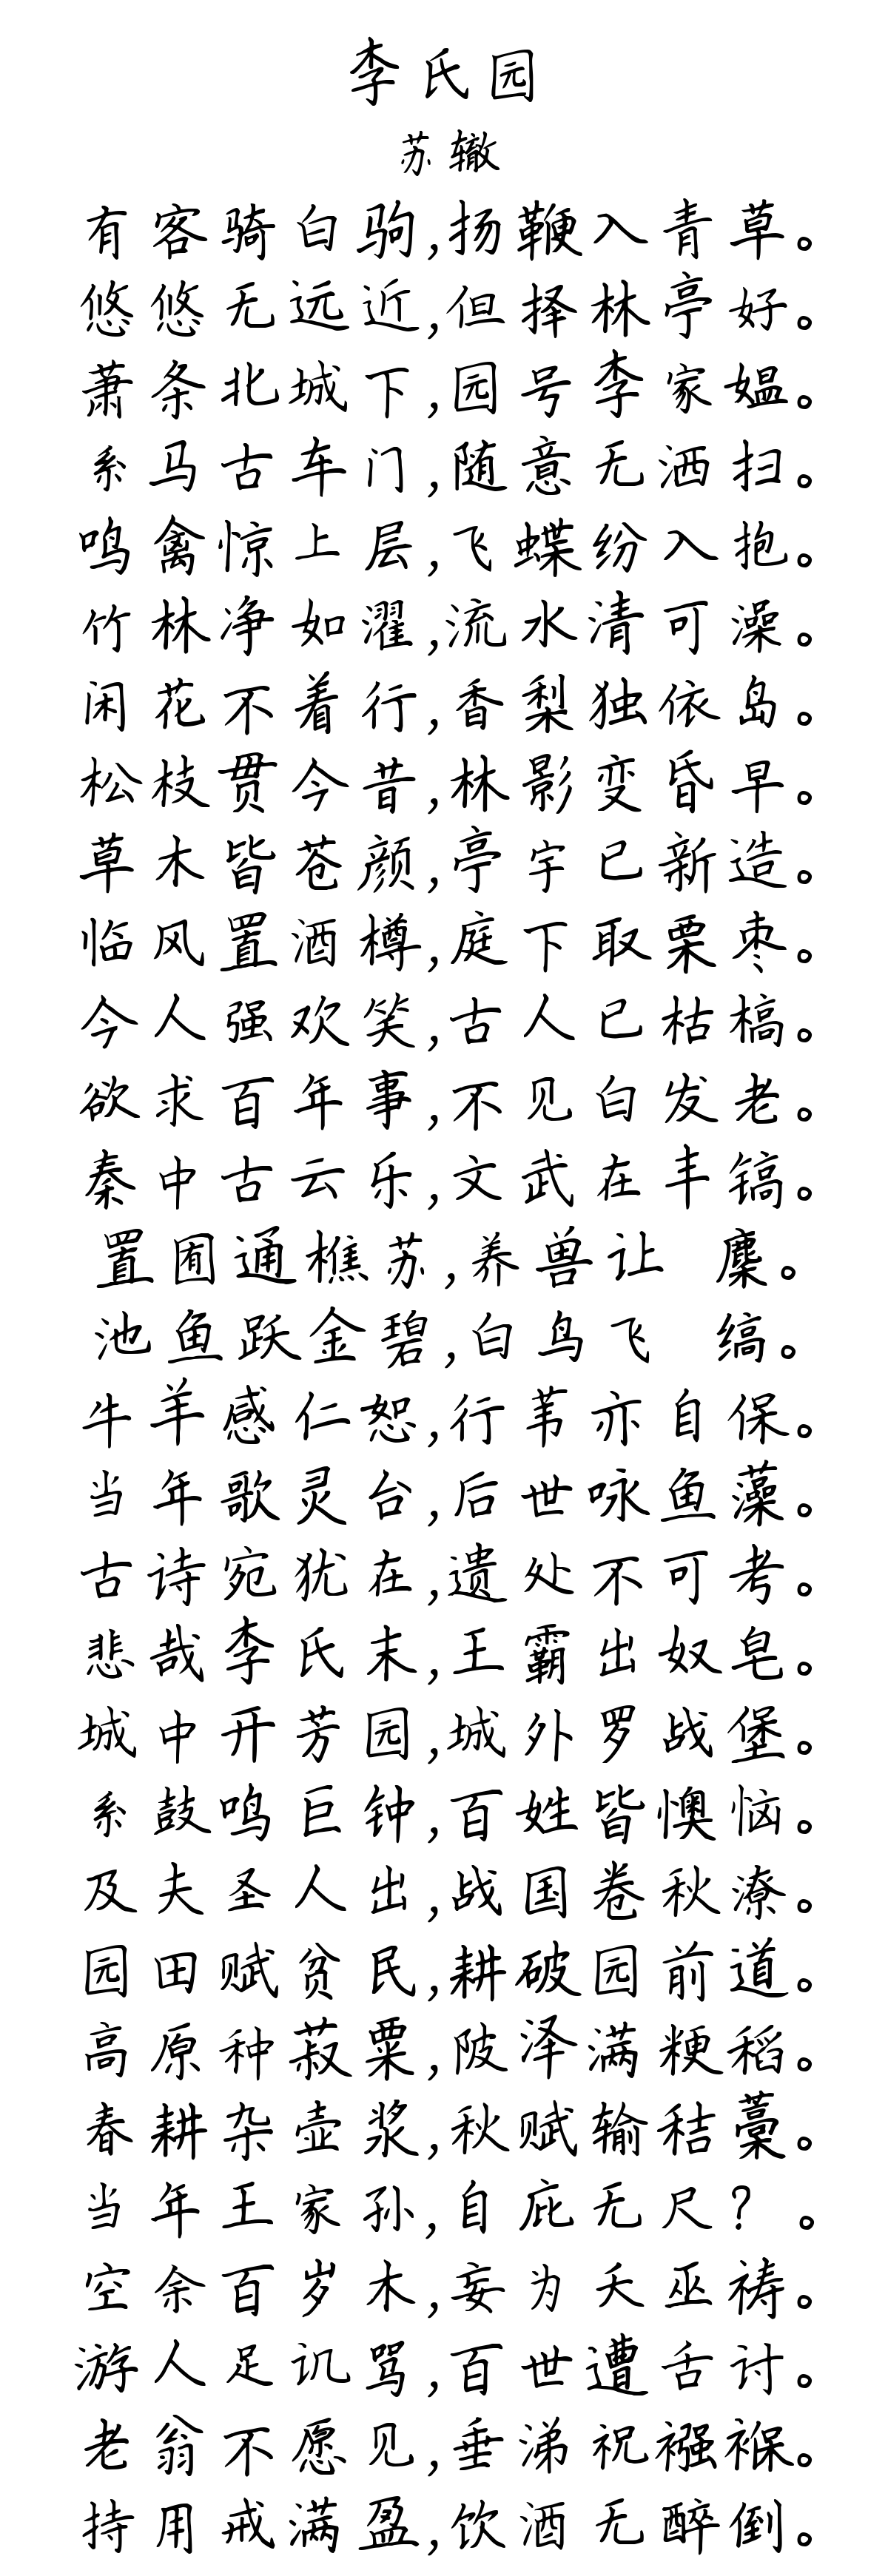 李氏园
苏辙
有客骑白驹,扬鞭入青草。
悠悠无远近,但择林亭好。
萧条北城下,园号李家媪。
系马古车门,随意无洒扫。
鸣禽惊上层,飞蝶纷入抱。
竹林净如濯,流水清可澡。
闲花不着行,香梨独依岛。
松枝贯今昔,林影变昏早。
草木皆苍颜,亭宇已新造。
临风置酒樽,庭下取栗枣。
今人强欢笑,古人已枯槁。
欲求百年事,不见白发老。
秦中古云乐,文武在丰镐。
置囿通樵苏,养兽让 麇。
池鱼跃金碧,白鸟飞 缟。
牛羊感仁恕,行苇亦自保。
当年歌灵台,后世咏鱼藻。
古诗宛犹在,遗处不可考。
悲哉李氏末,王霸出奴皂。
城中开芳园,城外罗战堡。
系鼓鸣巨钟,百姓皆懊恼。
及夫圣人出,战国卷秋潦。
园田赋贫民,耕破园前道。
高原种菽粟,陂泽满粳稻。
春耕杂壶浆,秋赋输秸藁。
当年王家孙,自庇无尺? 。
空余百岁木,妄为夭巫祷。
游人足讥骂,百世遭舌讨。
老翁不愿见,垂涕祝襁褓。
持用戒满盈,饮酒无醉倒。